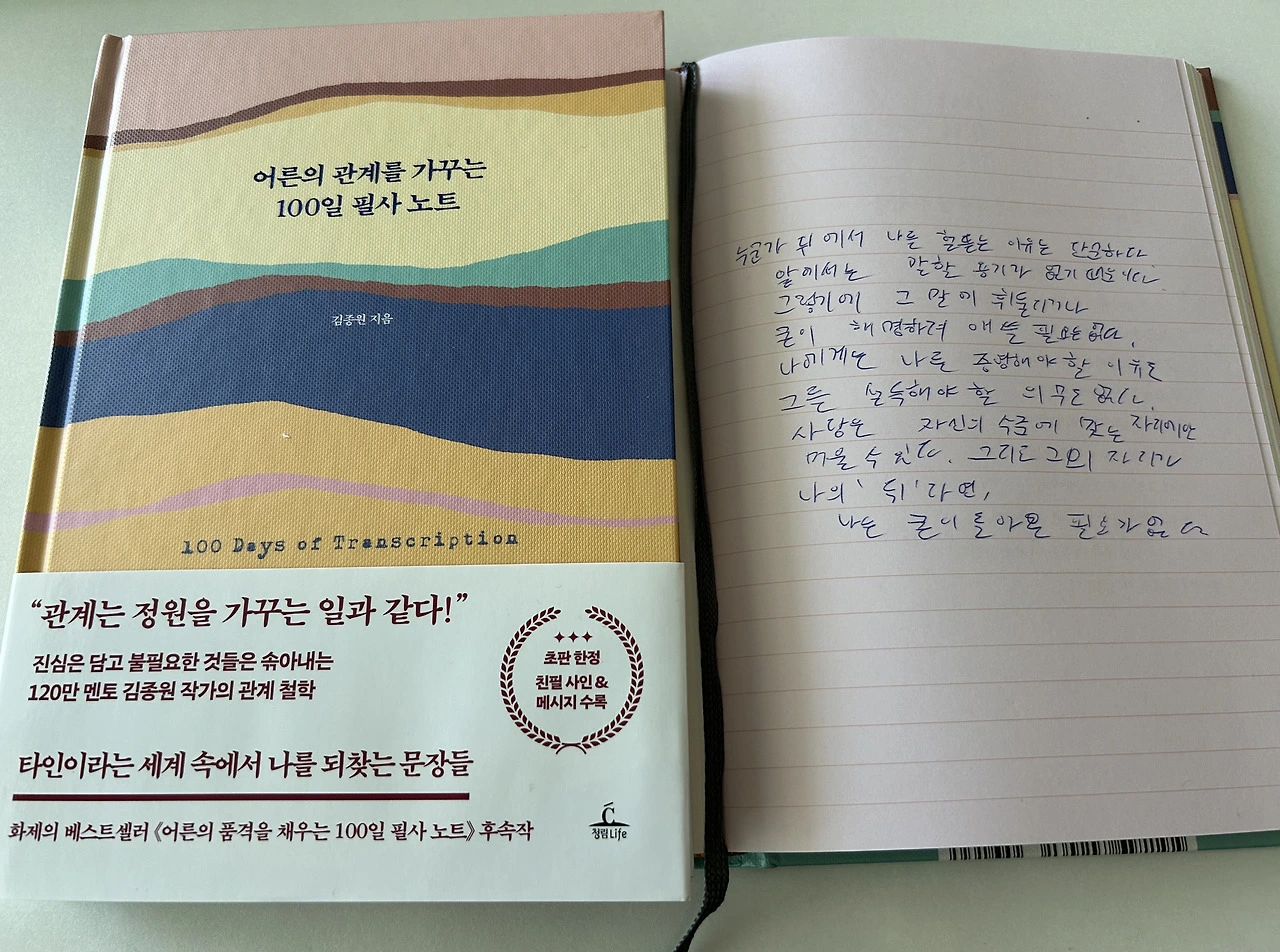 어른의 관계를 가꾸는
100일 필사 노트
김종원 지음
100 Days of Transcription
“관계는 정원을 가꾸는 일과 같다!”
진심은 담고 불필요한 것들은 솎아내는
120만 멘토 김종원 작가의 관계 철학
초판 한정
친필 사인 &
메시지 수록
타인이라는 세계 속에서 나를 되찾는 문장들
화제의 베스트셀러 《어른의 품격을 채우는 100일 필사 노트》 후속작
청림Life
누군가 뒤에서 나를 헐뜯는 이유는 단순하다
앞에서는 말할 용기가 없기 때문이다.
그렇기에 그 말에 휘둘리거나
굳이 해명하려 애쓸 필요는 없다.
나에게는 나를 증명해야 할 이유도
그를 설득해야 할 의무도 없다.
사람은 자신의 수준에 맞는 자리에만
머물 수 있다. 그리고 그의 자리가
나의 '뒤'라면,
나는 굳이 돌아볼 필요가 없다